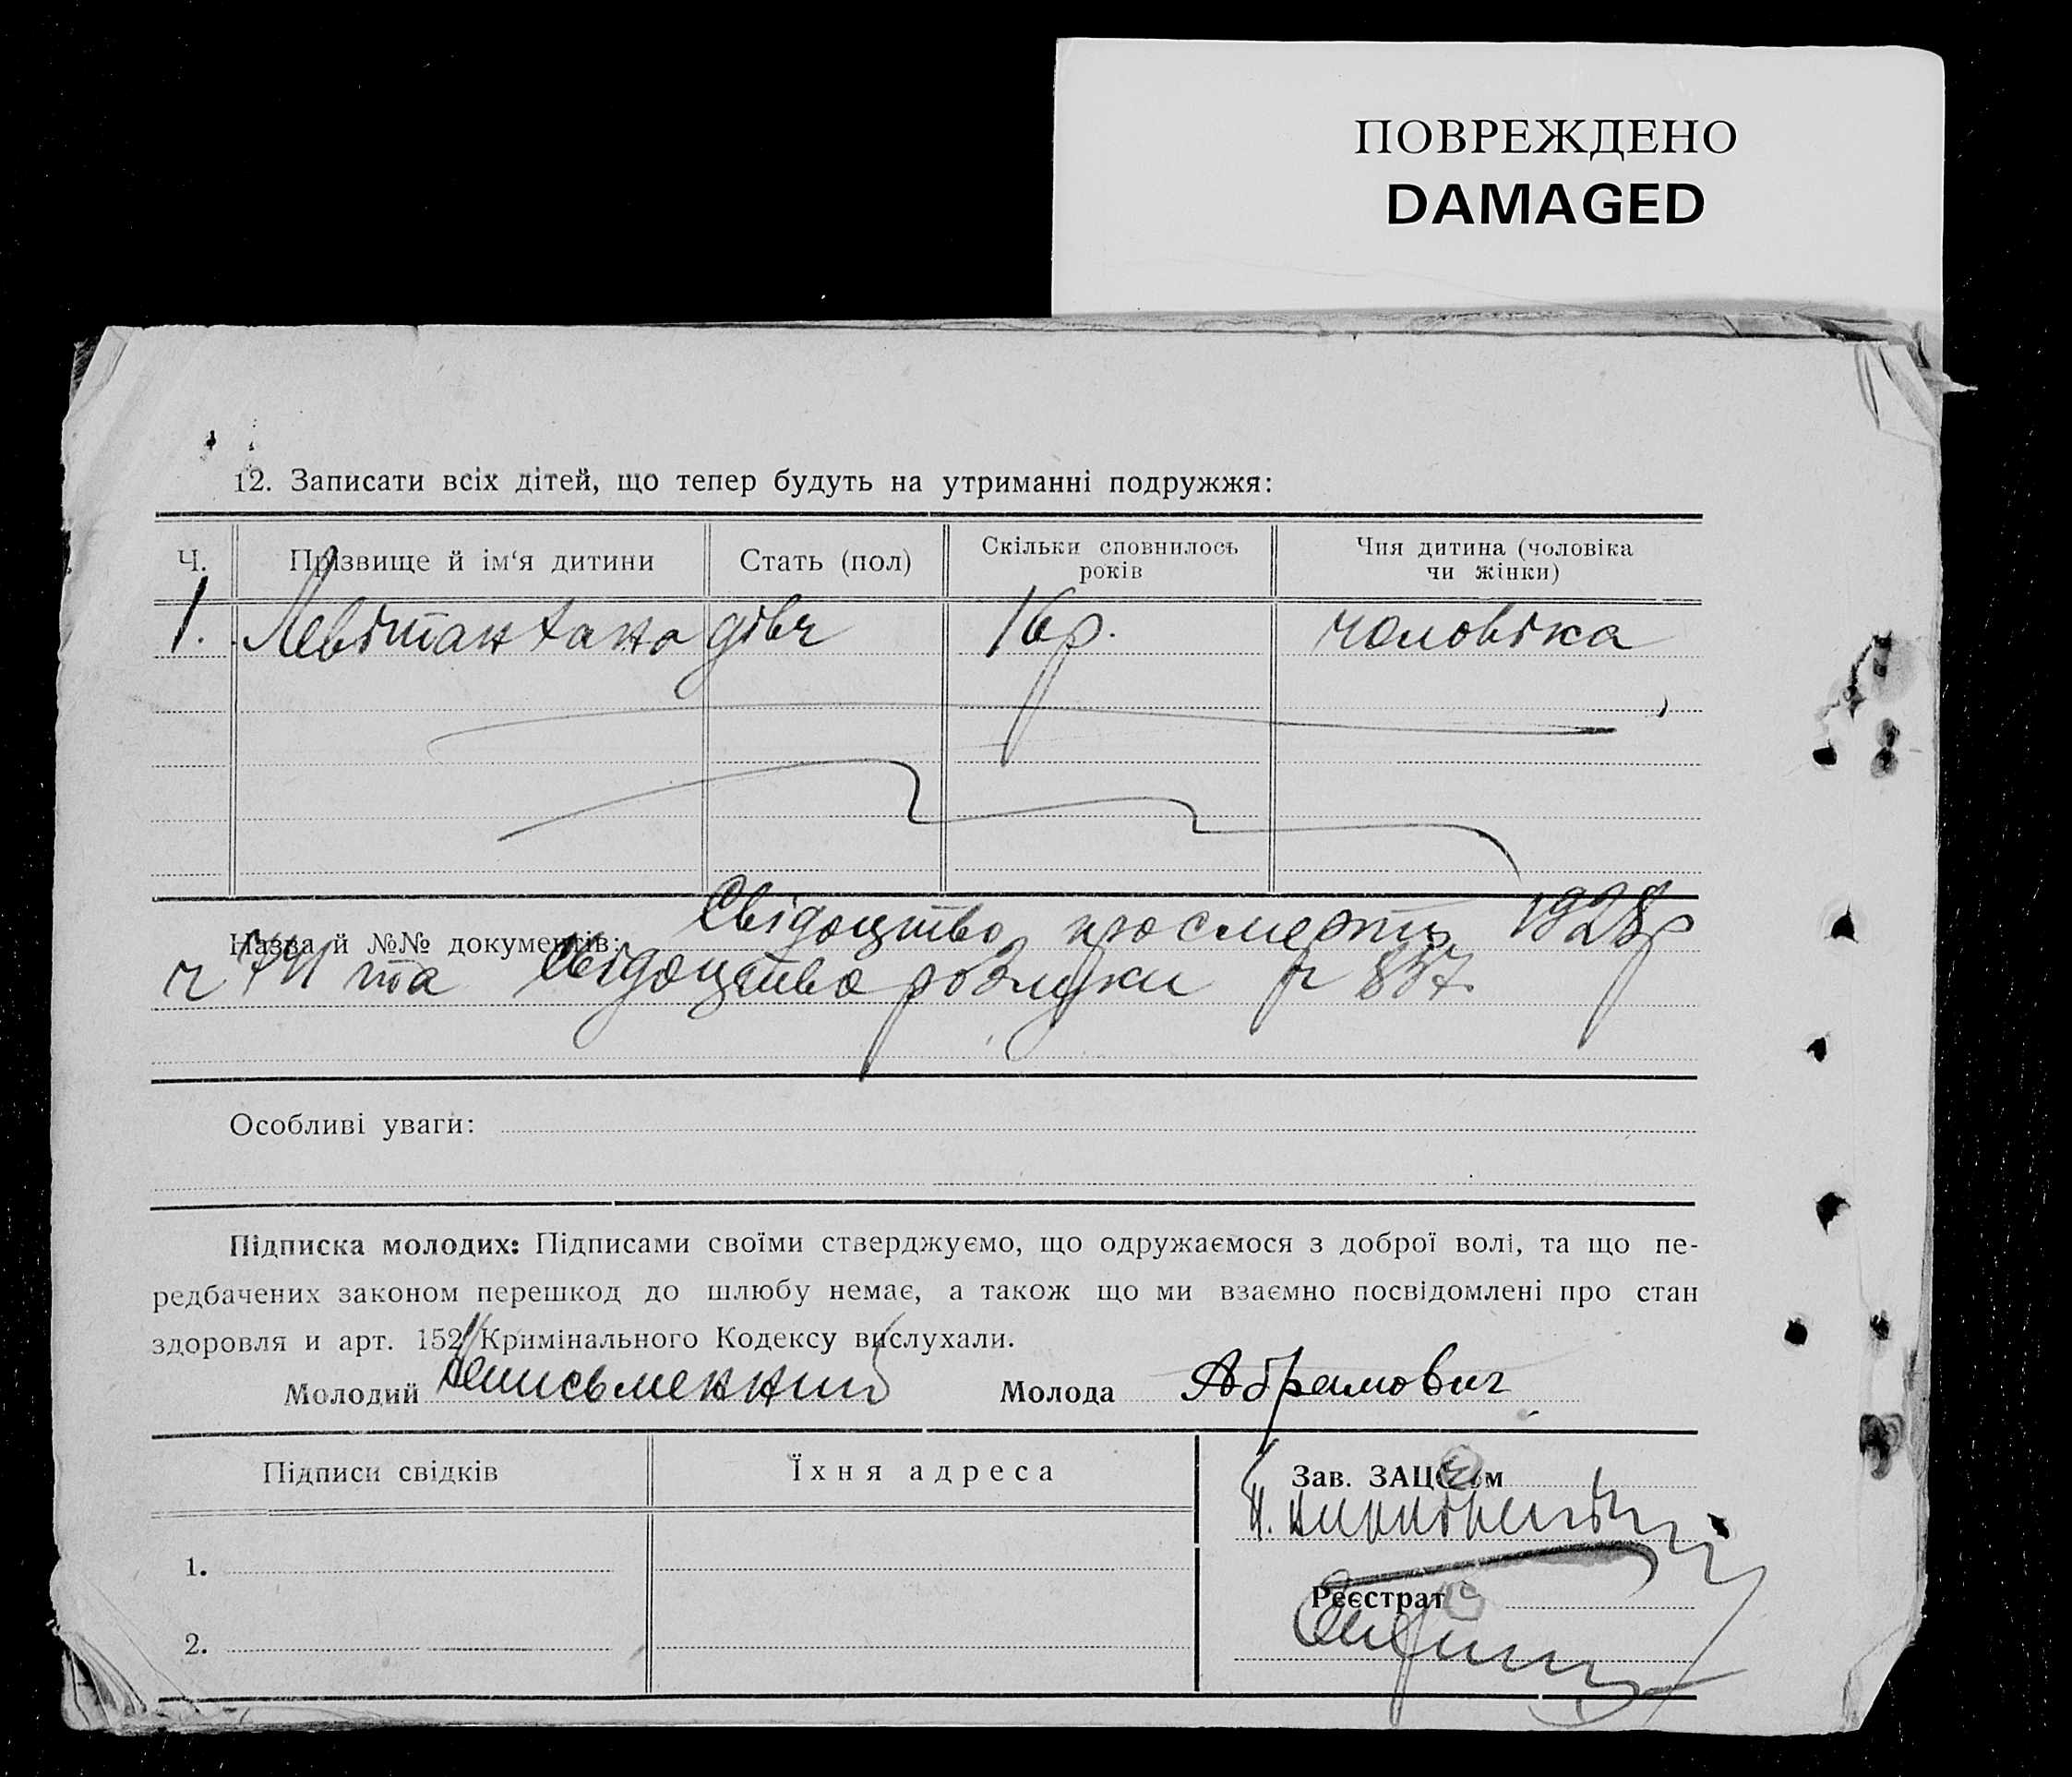 ПОВРЕЖДЕНО
DAMAGED
12. Записати всіх дітей, що тепер будуть на утриманні подружжя:
Ч. Прізвище й ім‘я дитини Стать (пол) Скільки сповнилось років Чия дитина (чоловіка чи жінки)
1. Левітан дівч 16р. чоловіка
Назва й №№ документів: Свідоцтво про смерть 1928р
ч 741 та Свідоцтво розлуки ч 857.
Особливі уваги:
Підписка молодих: Підписами своїми стверджуємо, що одружаємося з доброї волі, та що пе-
редбачених законом перешкод до шлюбу немає, а також що ми взаємно посвідомлені про стан
здоровля и арт. 152 Кримінального Кодексу вислухали.
Молодий Неписьменний Молода Абрамович
Підписи свідків Їхня адреса Зав. ЗАЦСом
1.
Реєстрат
2.